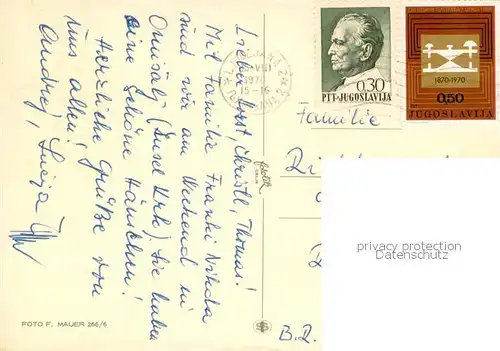 Lieber Horst, Christl, Thomas!
Mit Familie Franki Nikola
sind wir am Wochend in
Omišalj (Insel Krk). Sie haben
eine schöne Häuschen!
Herzliche Grüße von
uns allen!
Andrej, Lucija
FOTO F. MAUER 266/6
1970
15-16
0,30
PTT-JUGOSLAVIJA
1870-1970
0,50
JUGOSLAVIJA
Familie
B.R.
privacy protection
Datenschutz